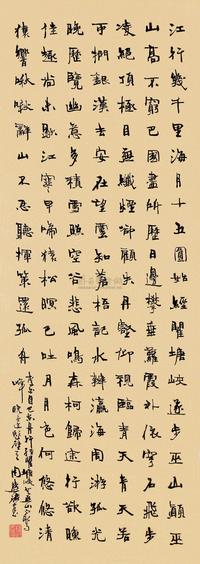 江行幾千里海月十五圓始經瞿塘峽遂步巫山巔巫
山高不窮巴國盡所歷日邊攀垂蘿霞外倚穹石飛步
凌絕頂極目無纖煙卻顧失丹壑仰觀臨青天青天若
可捫銀漢去安在望雲知蒼梧記水辨瀛海周游孤光
晚歷覽幽意多積雪照空谷悲風鳴森柯歸途行欲曛
佳趣尚未歇江寒早啼猿松暝已吐月月色何悠悠清
猿響啾啾辭山不忍聽揮策還孤舟
李白自巴東舟行經瞿塘峽登巫山最高
峰晚還題壁